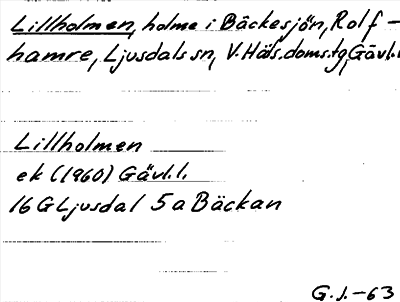 Lillholmen, holme i Bäckesjön, Rolf-
hamre, Ljusdals sn, V. Häls. doms.tg, Gävl.l
Lillholmen
ek (1960) Gävl.l.
16 G Ljusdal 5 a Bäckan
G.J.-63